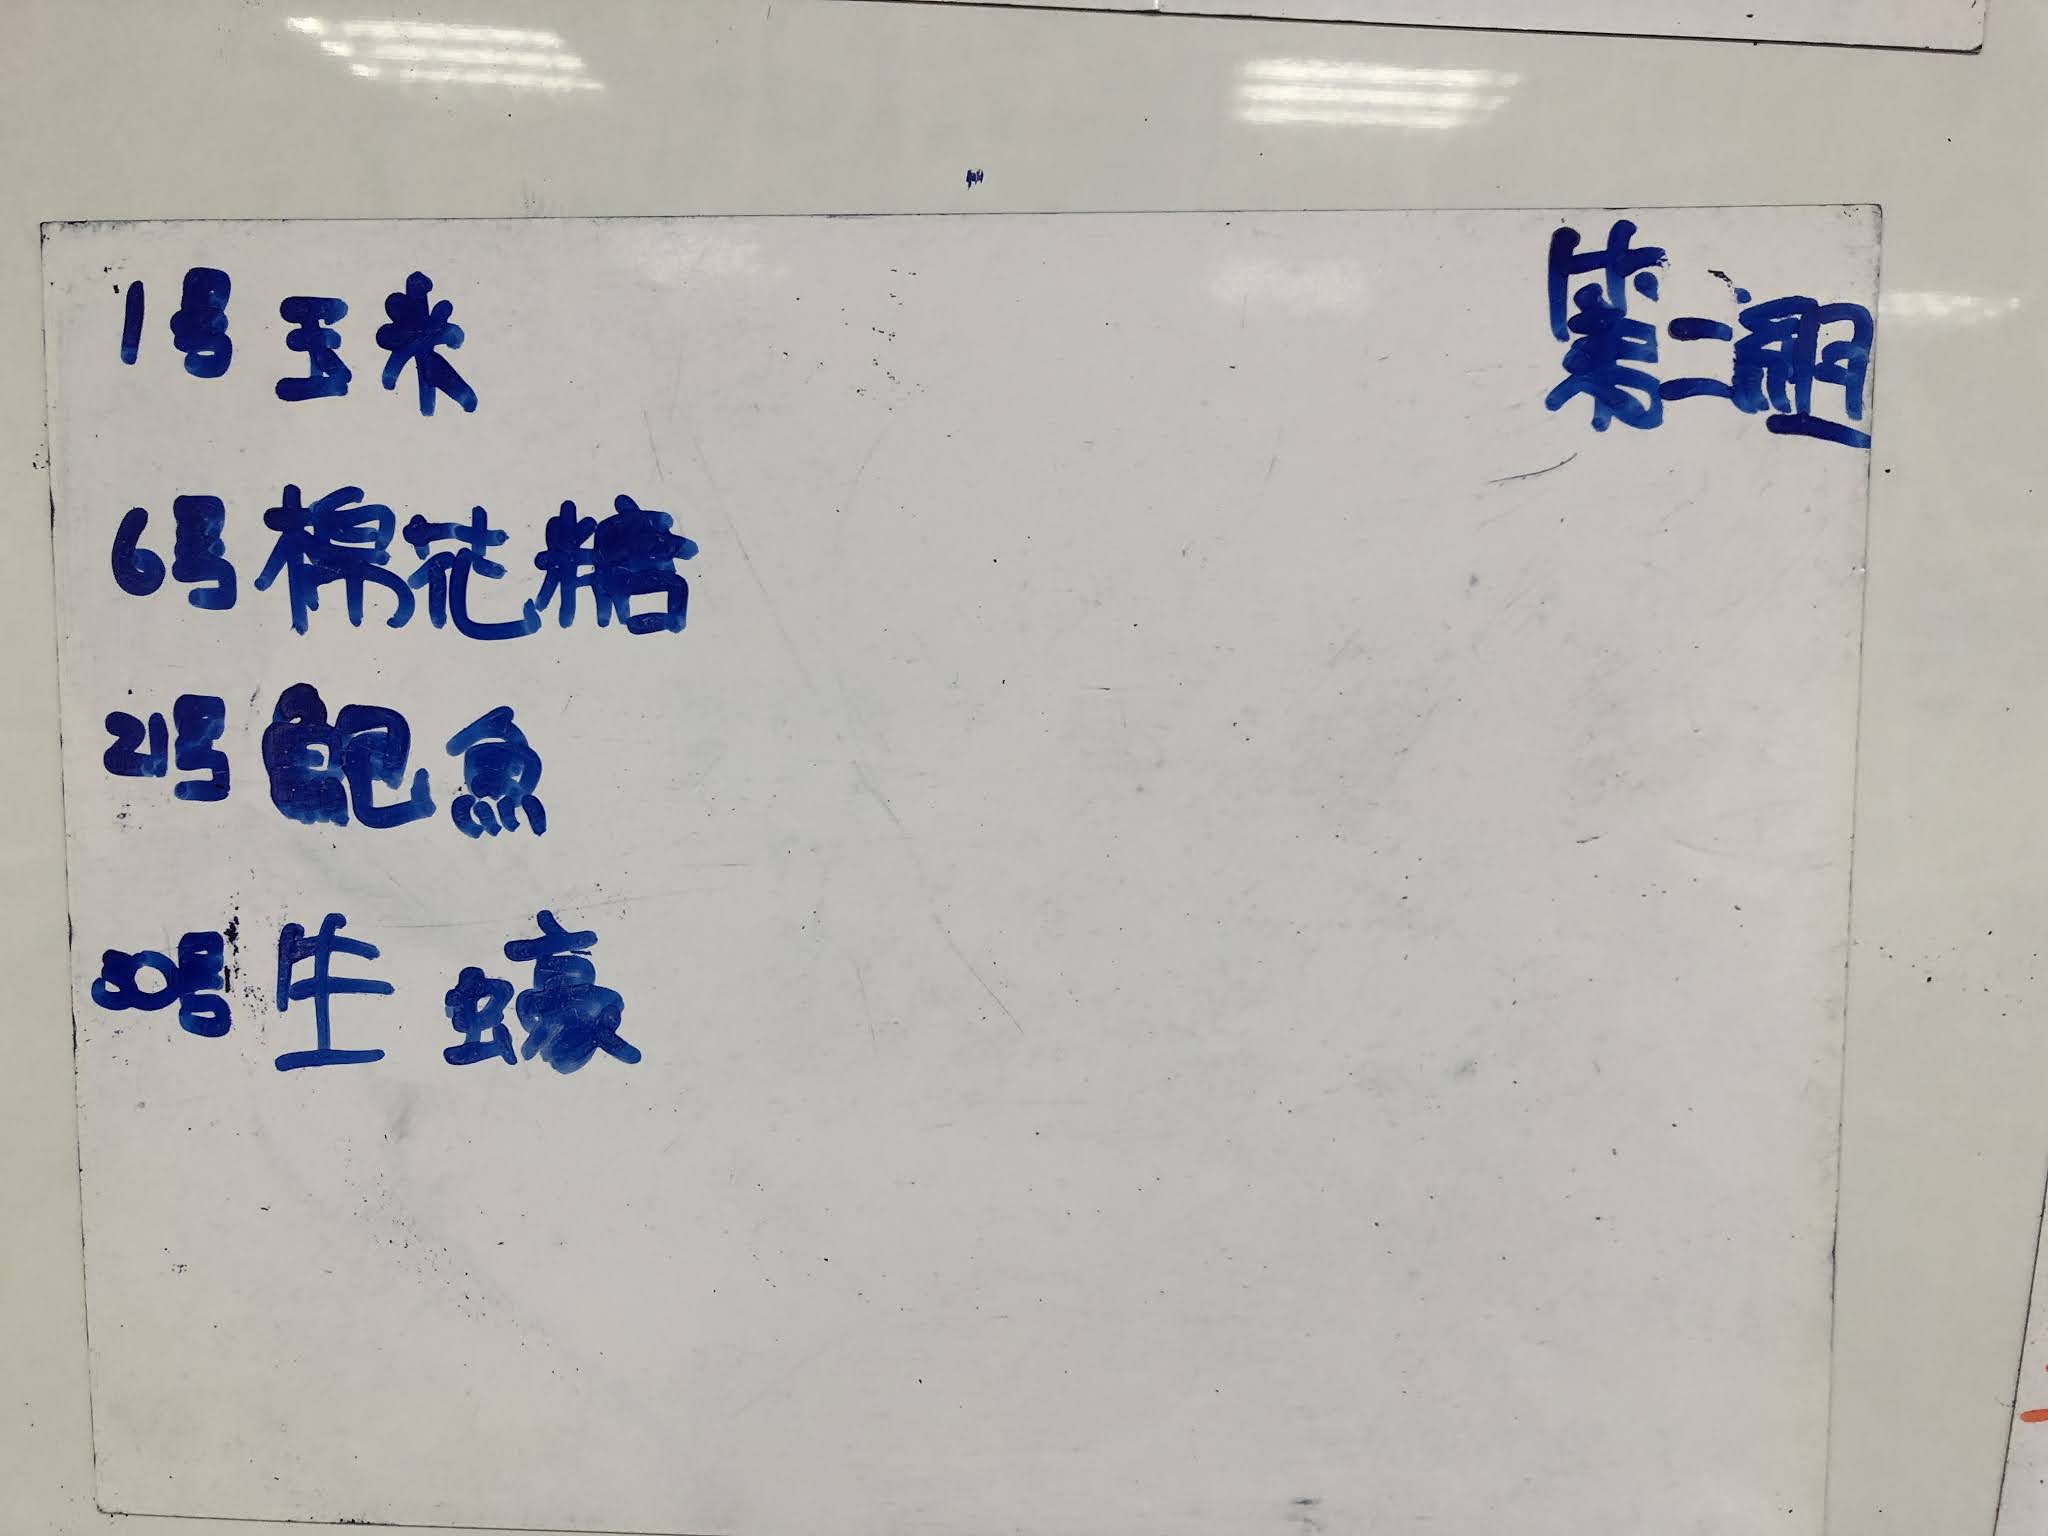 第二組
1号 玉米
6号 棉花糖
21号 鮑魚
30号 生蠔